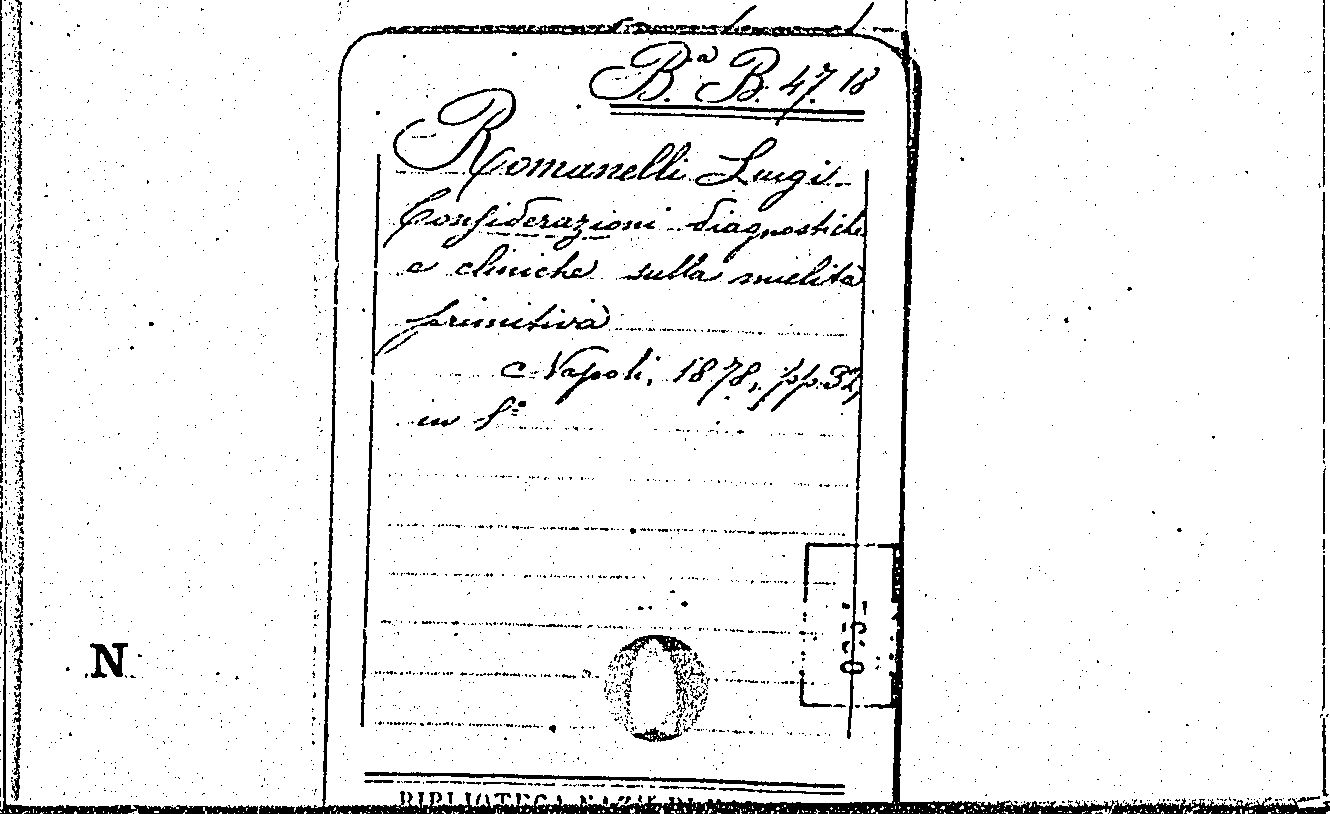 B.ª B. 47. 18
Romanelli Luigi.
Considerazioni diagnostiche
e cliniche sulla mielite
primitiva
Napoli, 1878, pp. 32,
in 8º
N
BIBLIOTECA